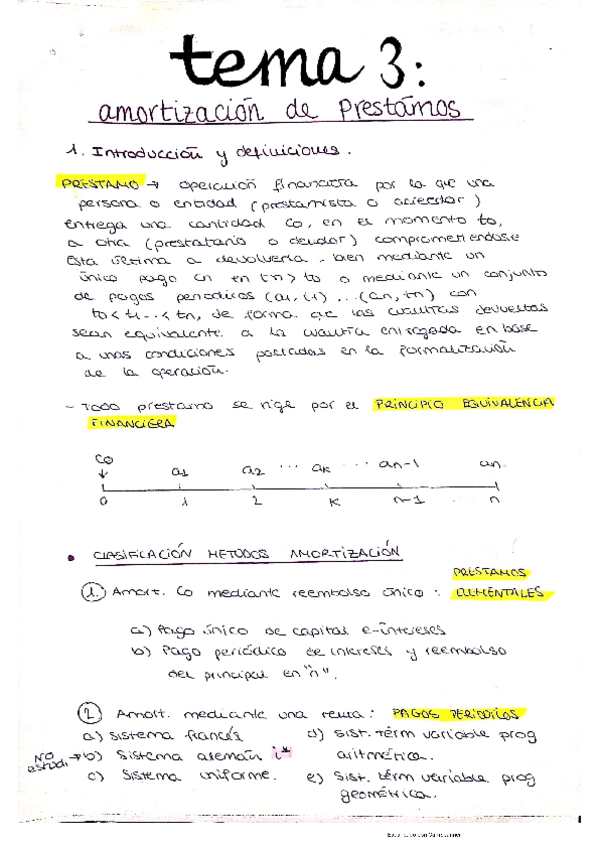 tema 3:
amortización de Prestámos
1. Introducción y definiciones.
PRESTAMO → operación financiera por la que una
persona o entidad (prestamista o acreedor)
entrega una cantidad Co, en el momento to,
a otra (prestatario o deudor) comprometiendose
esta última a devolverla, bien mediante un
único pago Cn en tn > to o mediante un conjunto
de pagos periodicos (a1, t1) ... (an, tn) con
to < t1 ... < tn, de forma que las cuantias devueltas
sean equivalente a la cuantia entregada en base
a unas condiciones pactadas en la formalización
de la operación.
- Todo prestamo se rige por el PRINCIPIO EQUIVALENCIA
FINANCIERA
Co
a1 a2 ... ak ... an-1 an
0 1 2 k n-1 n
• CLASIFICACIÓN METODOS AMORTIZACIÓN
PRESTAMOS
1. Amort. Co mediante reembolso único: ELEMENTALES
a) Pago único de capital e intereses
b) Pago periódico de intereses y reembolso
del principal en "n".
2 Amort. mediante una renta: PAGOS PERIODICOS
a) Sistema francés d) Sist. térm variable prog
NO estudi → b) Sistema alemán i* aritmética.
c) Sistema uniforme. e) Sist. térm variable prog
geométrica.